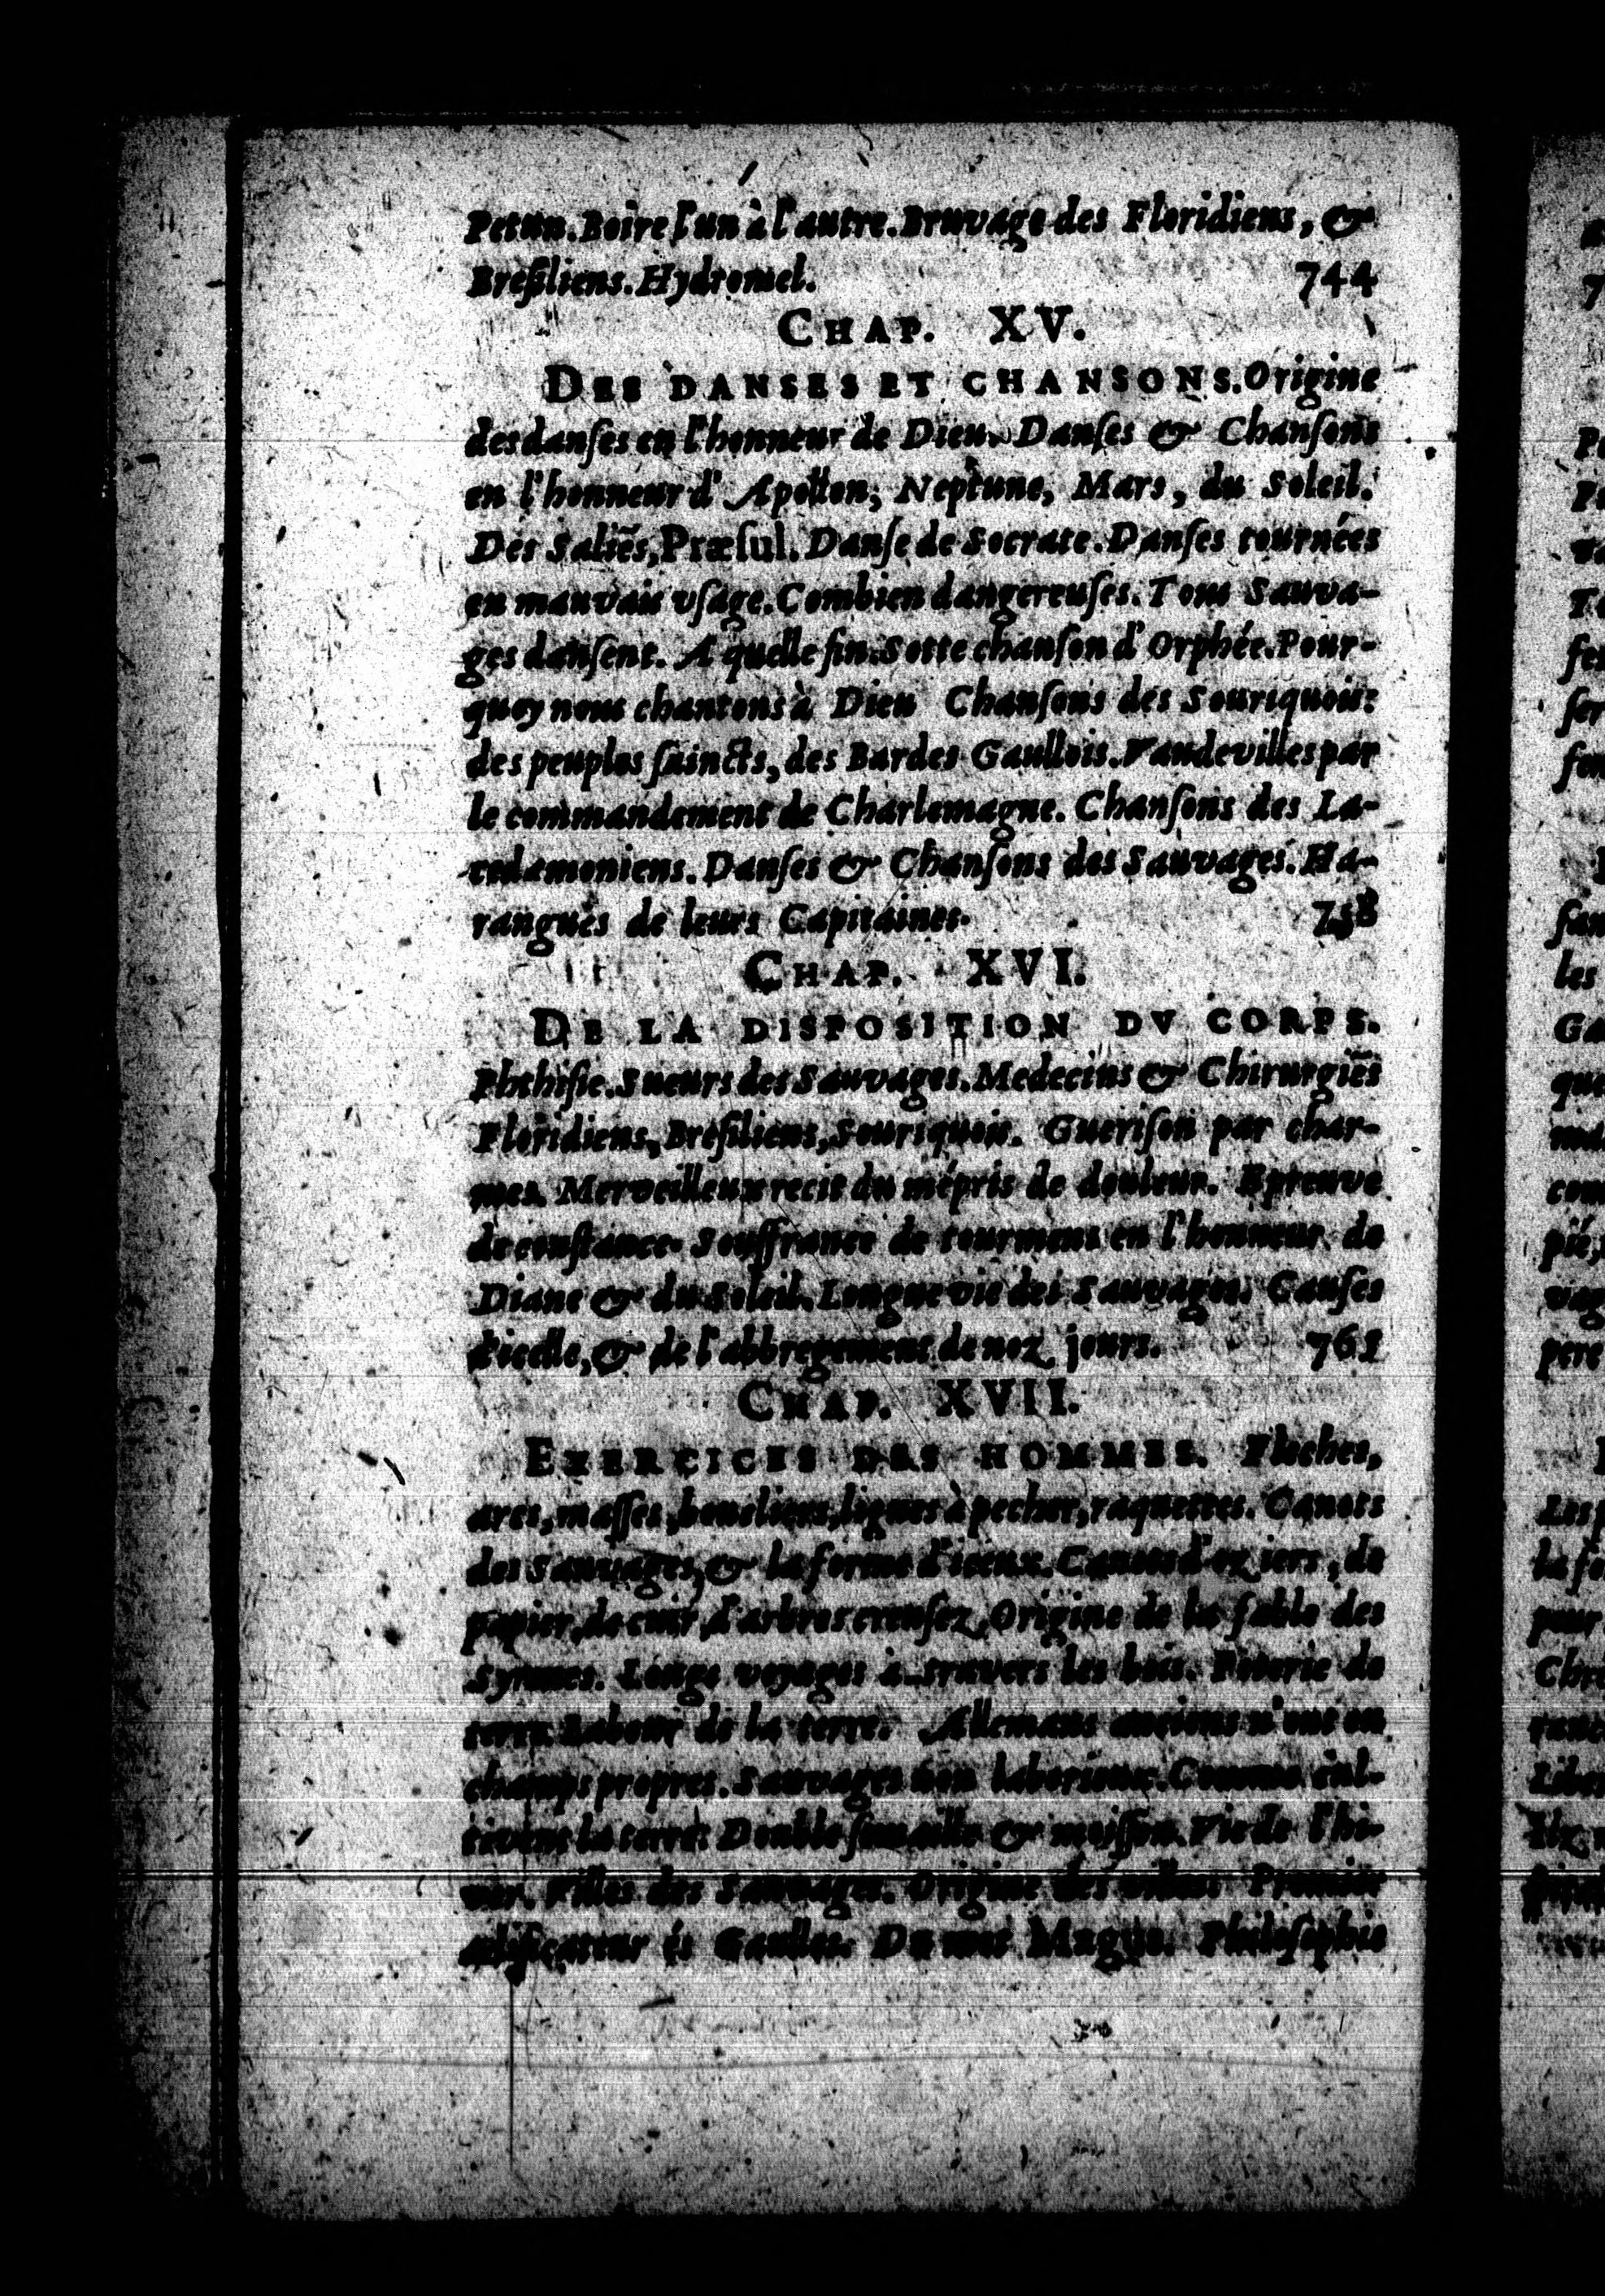 Petun. Boire l'un à l'autre. Bruvage des Floridiens, &
Bresiliens. Hydromel. 744
CHAP. XV.
DES DANSES ET CHANSONS. Origine
des danſes en l'honneur de Dieu. Danſes & Chanſons
en l'honneur d'Apollon, Neptune, Mars, du Soleil.
Des Saliẽs, Præſul. Danſe de Socrate. Danſes tournées
en mauvais vſage. Combien dangereuſes. Tous Sauva-
ges danſent. A quelle fin. Sotte chanſon d'Orphée. Pour-
quoy nous chantons à Dieu Chanſons des Souriquois:
des peuples ſaincts, des Bardes Gaullois. Vaudevilles par
le commandement de Charlemagne. Chanſons des La-
cedæmoniens. Danſes & Chanſons des Sauvages. Ha-
rangues de leurs Capitaines. 758
CHAP. XVI.
DE LA DISPOSITION DV CORPS.
Phthiſie. Sueurs des Sauvages. Medecins & Chirurgiẽs
Floridiens, Breſiliens, Souriquois. Gueriſon par char-
mes. Merveilleux recit du mépris de douleur. Epreuve
de conſtance. Souffrance de tourmens en l'honneur de
Diane & du Soleil. Longue vie des Sauvages. Cauſes
d'icelle, & de l'abbregement de noz jours. 765
CHAP. XVII.
EXERCICES DES HOMMES. Fleches,
arcs, maſſes, boucliers, lignes à pecher, raquettes. Canots
des Sauvages, & la forme d'iceux. Canots d'oziers, de
papier, de cuir, d'arbres creuſez. Origine de la fable des
Syrenes. Longs voyages à travers les bois. Poterie de
terre. Labour de la terre. Allemans anciens n'ont eu
champs propres. Sauvages non laborieux. Comme cul-
tivent la terre. Double ſemaille & moiſſon. Vie de l'hi-
ver. Villes des Sauvages. Origine des villes. Premier
edificateur és Gaulles. Du mot Magus. Philoſophie